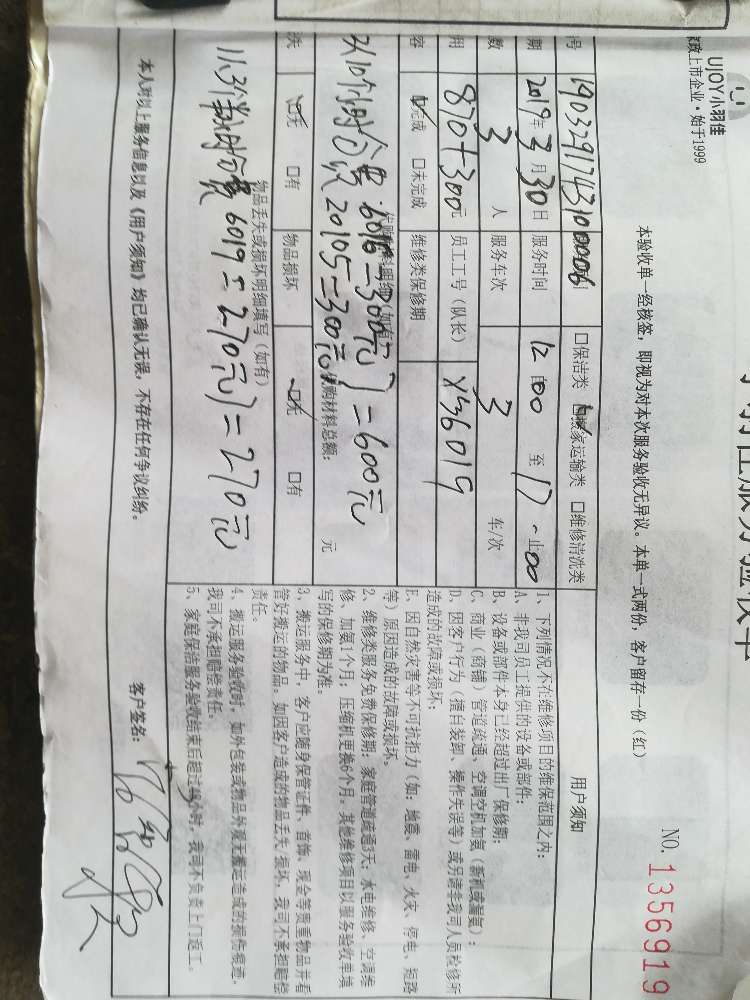 UJOY小羽佳
家政上市企业·始于1999
NO. 1356919
本验收单一经核签，即视为对本次服务验收无异议。本单一式两份，客户留存一份（红）
号 190329174310006 □保洁类 ☑搬家运输类 □维修清洗类
期 2019年3月30日 服务时间 12:00 至 17:00 止
数 3 人 服务车次 3 车/次
用 870+300元 员工工号（队长） X36019
容 ☑完成 □未完成 维修类保修期
6016=300元
20105=300元
=600元
代购材料总额： 元
失 ☑无 □有 物品损坏 ☑无 □有
物品丢失或损坏明细填写（如有）
6019=270元)=270元
本人对以上服务信息以及《用户须知》均已确认无误，不存在任何争议纠纷。
客户签名：
用户须知
1、下列情况不在维修项目的维保范围之内：
A、非我司员工提供的设备或部件；
B、设备或部件本身已经超过出厂保修期；
C、商业（商铺）管道疏通、空调空机加氨（新机或漏氨）；
D、因客户行为（擅自装卸、操作失误等）或另请非我司人员检修所
造成的故障或损坏；
E、因自然灾害等不可抗拒力（如：地震、雷电、火灾、停电、短路
等）原因造成的故障或损坏。
2、维修类服务免费保修期：家庭管道疏通3天；水电维修、空调维
修、加氨1个月；压缩机更换6个月。其他维修项目以服务验收单填
写的保修期为准。
3、搬运服务中，客户应随身保管证件、首饰、现金等贵重物品并看
管好搬运的物品。如因客户造成的物品丢失/损坏，我司不承担赔偿
责任。
4、搬运服务验收时，如外包装或物品外观无搬运造成的损伤痕迹，
我司不承担赔偿责任。
5、家庭保洁服务验收结束后超过48小时，我司不负责上门返工。